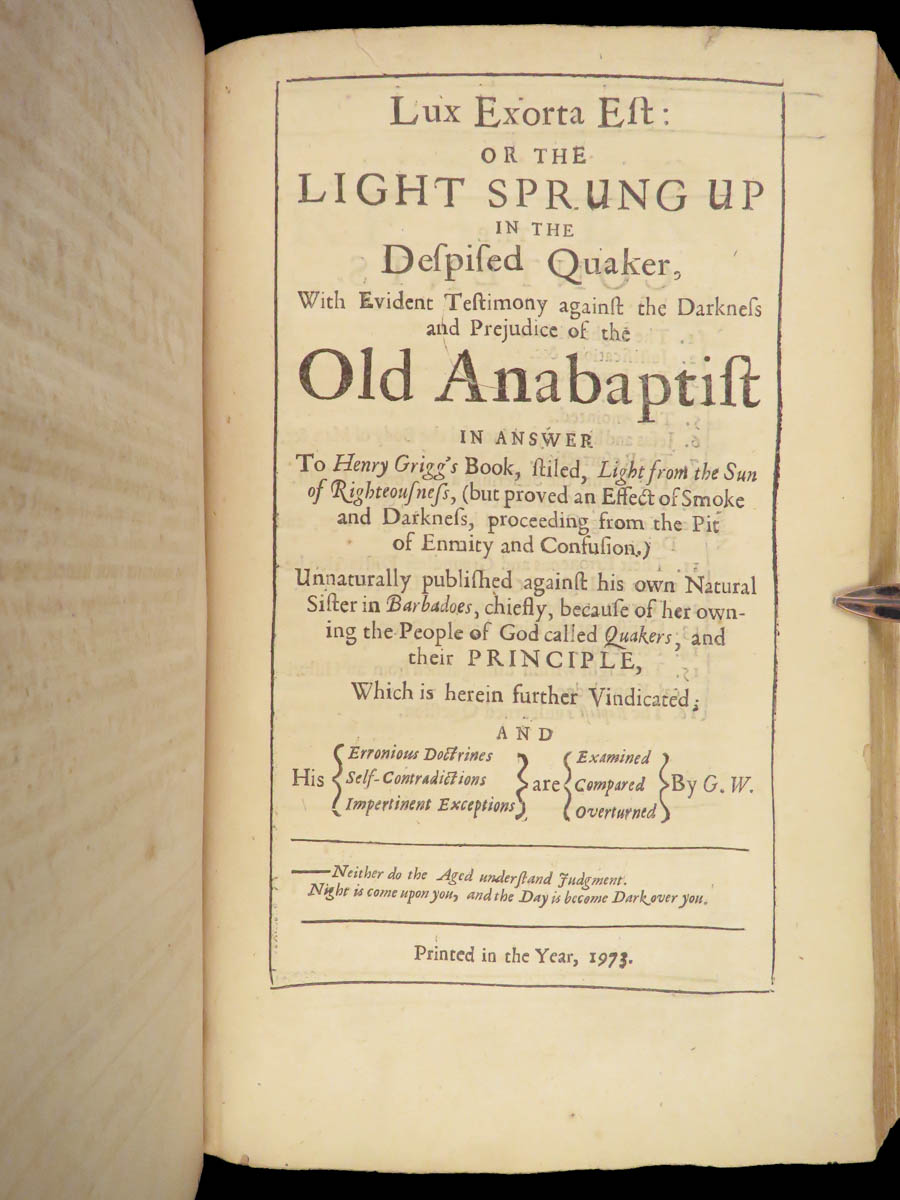 Lux Exorta Eſt:
OR THE
LIGHT SPRUNG UP
IN THE
Deſpiſed Quaker,
With Evident Teſtimony againſt the Darkneſs
and Prejudice of the
Old Anabaptiſt
IN ANSWER
To Henry Grigg's Book, ſtiled, Light from the Sun
of Righteouſneſs, (but proved an Effect of Smoke
and Darkneſs, proceeding from the Pit
of Enmity and Confuſion.)
Unnaturally publiſhed againſt his own Natural
Siſter in Barbadoes, chiefly, becauſe of her own-
ing the People of God called Quakers, and
their PRINCIPLE,
Which is herein further Vindicated;
AND
His { Erronious Doctrines Self-Contradictions Impertinent Exceptions } are { Examined Compared Overturned } By G. W.
——Neither do the Aged underſtand Judgment.
Night is come upon you, and the Day is become Dark over you.
Printed in the Year, 1973.